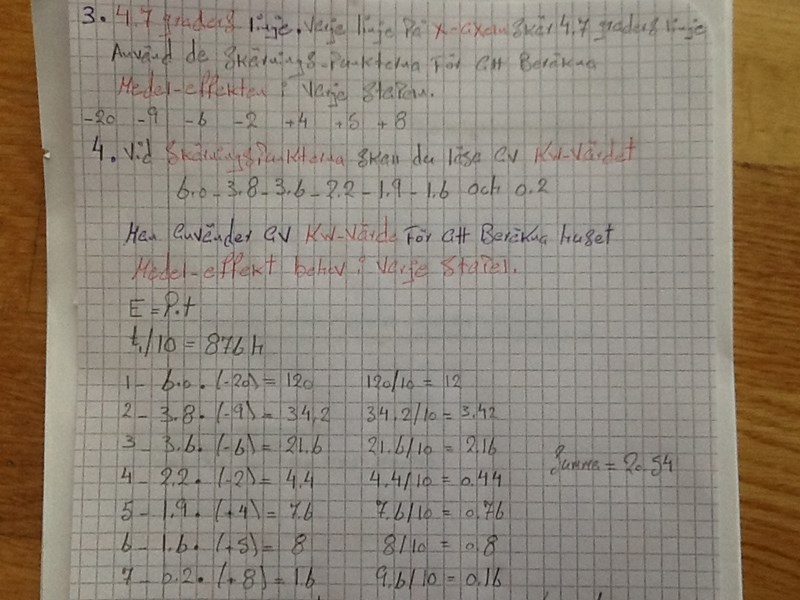 3. 4.7 graders linje. Varje linje på x-axeln skär 4.7 graders linje
Använd de skärnings-punkterna för att Beräkna
Medel-effekten i varje stapel.
-20 -9 -6 -2 +4 +5 +8
4. Vid skärningspunkterna skan du läsa av KW-värdet
6.0 - 3.8 - 3.6 - 2.2 - 1.9 - 1.6 och 0.2
Man använder av KW-värde för att Beräkna huset
Medel-effekt behov i varje stapel.
E = P.t
t/10 = 876 h
1 - 6.0 . (-20) = 120 120/10 = 12
2 - 3.8 . (-9) = 34,2 34.2/10 = 3.42
3 - 3.6 . (-6) = 21.6 21.6/10 = 2.16
4 - 2.2 . (-2) = 4.4 4.4/10 = 0.44
summa = 20.54
5 - 1.9 . (+4) = 7.6 7.6/10 = 0.76
6 - 1.6 . (+5) = 8 8/10 = 0.8
7 - 0.2 . (+8) = 1.6 9.6/10 = 0.16